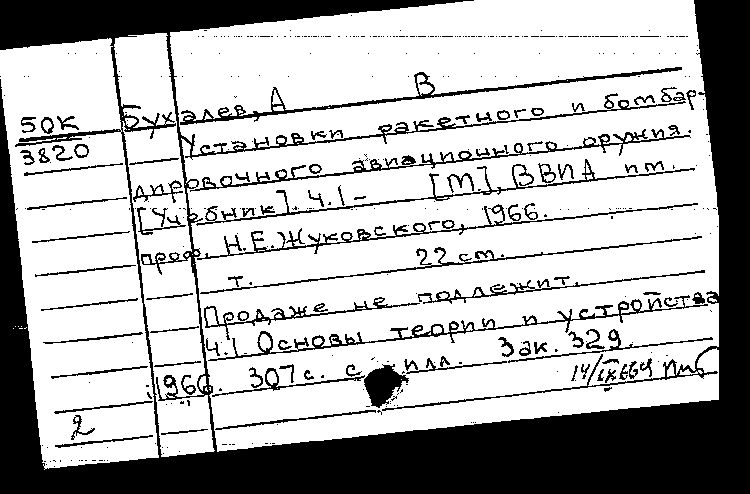 Бухалев, А В
50К
3820
Установки ракетного и бомбар-
дировочного авиационного оружия.
[Учебник]. Ч.1- [М.], ВВИА им.
проф. Н.Е.Жуковского, 1966.
т. 22 см.
Продаже не подлежит.
Ч.1. Основы теории и устройства
1966. 307с. с илл. Зак. 329.
2